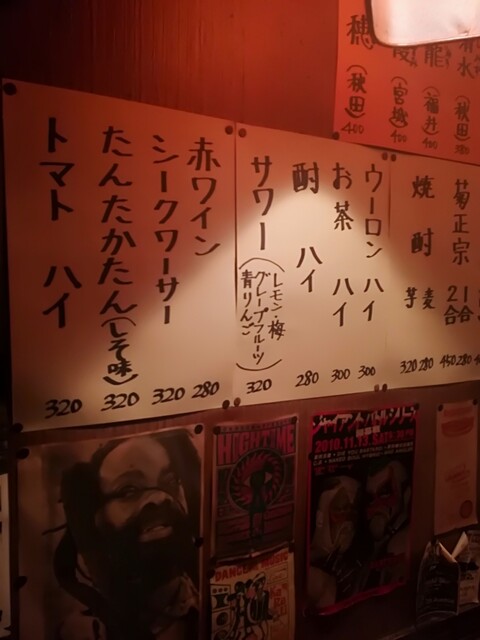 穂(秋田)400
(宮城)400
龍(福井)400
水(秋田)380
菊正宗
2合 1合
450 280
焼酎
麦 芋
280 320
ウーロンハイ 300
お茶ハイ 300
酎ハイ 280
サワー(レモン・梅 グレープフルーツ 青りんご)320
赤ワイン 280
シークワーサー 320
たんたかたん(しそ味)320
トマトハイ 320
HIGHTIME
ジャイアント・バトル・シリーズ
2010.11.13.SAT.
DANCE